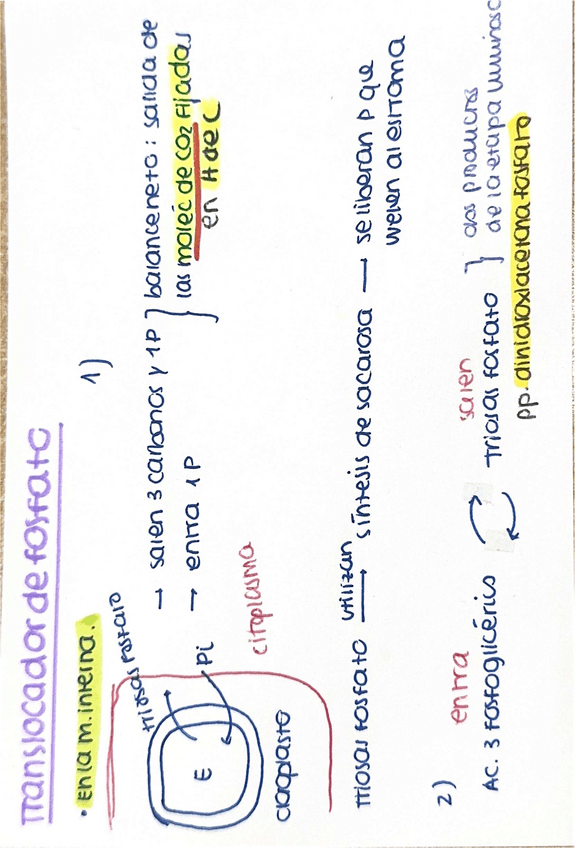 Translocador de fosfato
• En la m. interna.
1)
triosas fosfato
Pi
E
cloroplasto
citoplasma
→ salen 3 carbonos y 1P } balance neto: salida de
→ entra 1P
las molec de CO2 fijadas
en H de C
triosas fosfato utilizan → síntesis de sacarosa → se liberan P que
vuelven al estroma
2)
entra
salen
AC. 3 fosfoglicérico
triosas fosfato } dos productos
de la etapa luminosa
pp. dihidroxiacetona fosfato